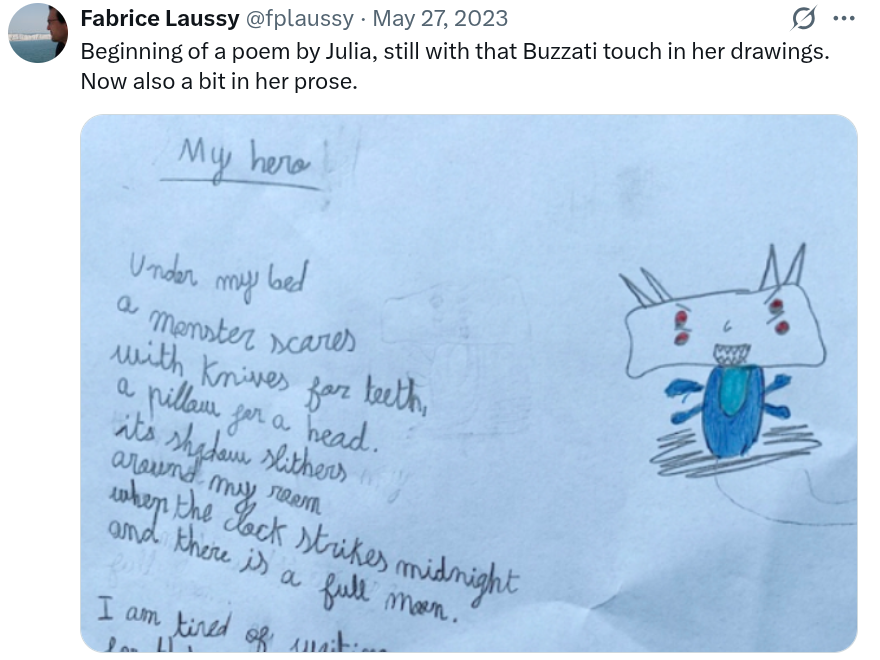 Fabrice Laussy @fplaussy · May 27, 2023
Beginning of a poem by Julia, still with that Buzzati touch in her drawings.
Now also a bit in her prose.
My hero
Under my bed
a monster scares
with knives for teeth,
a pillow for a head.
its shadow slithers
around my room
when the clock strikes midnight
and there is a full moon.
I am tired of